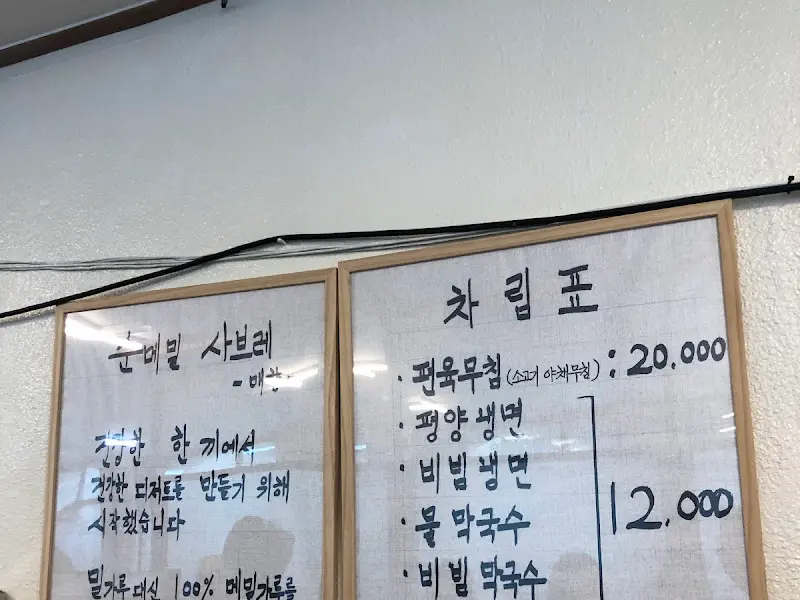 순메밀 사브레
건강한 한 끼에서
건강한 디저트를 만들기 위해
시작했습니다
밀가루 대신 100% 메밀가루를
차림표
· 편육무침 (소고기 야채무침) : 20.000
· 평양냉면
· 비빔냉면
· 물막국수
· 비빔막국수
12.000